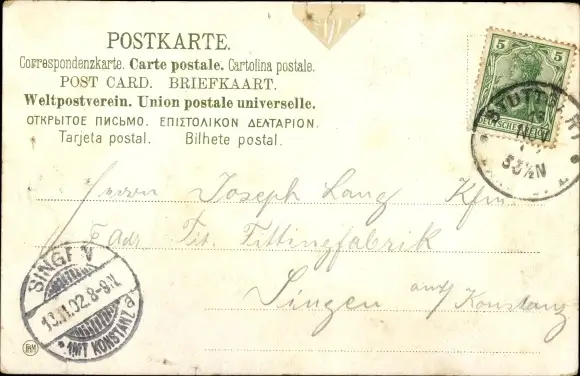 POSTKARTE.
Correspondenzkarte. Carte postale. Cartolina postale.
POST CARD. BRIEFKAART.
Weltpostverein. Union postale universelle.
ОТКРЫТОЕ ПИСЬМО. ΕΠΙΣΤΟΛΙΚΟΝ ΔΕΛΤΑΡΙΟΝ.
Tarjeta postal. Bilhete postal.
5 5
DEUTSCHES REICH
STUTTG
NOV
5-5½N
Herrn Joseph Lang Kfm
Tit. Fittingfabrik
Singen Konstanz
SINGEN
13.11.02.8-9N.
AMT KONSTANZ